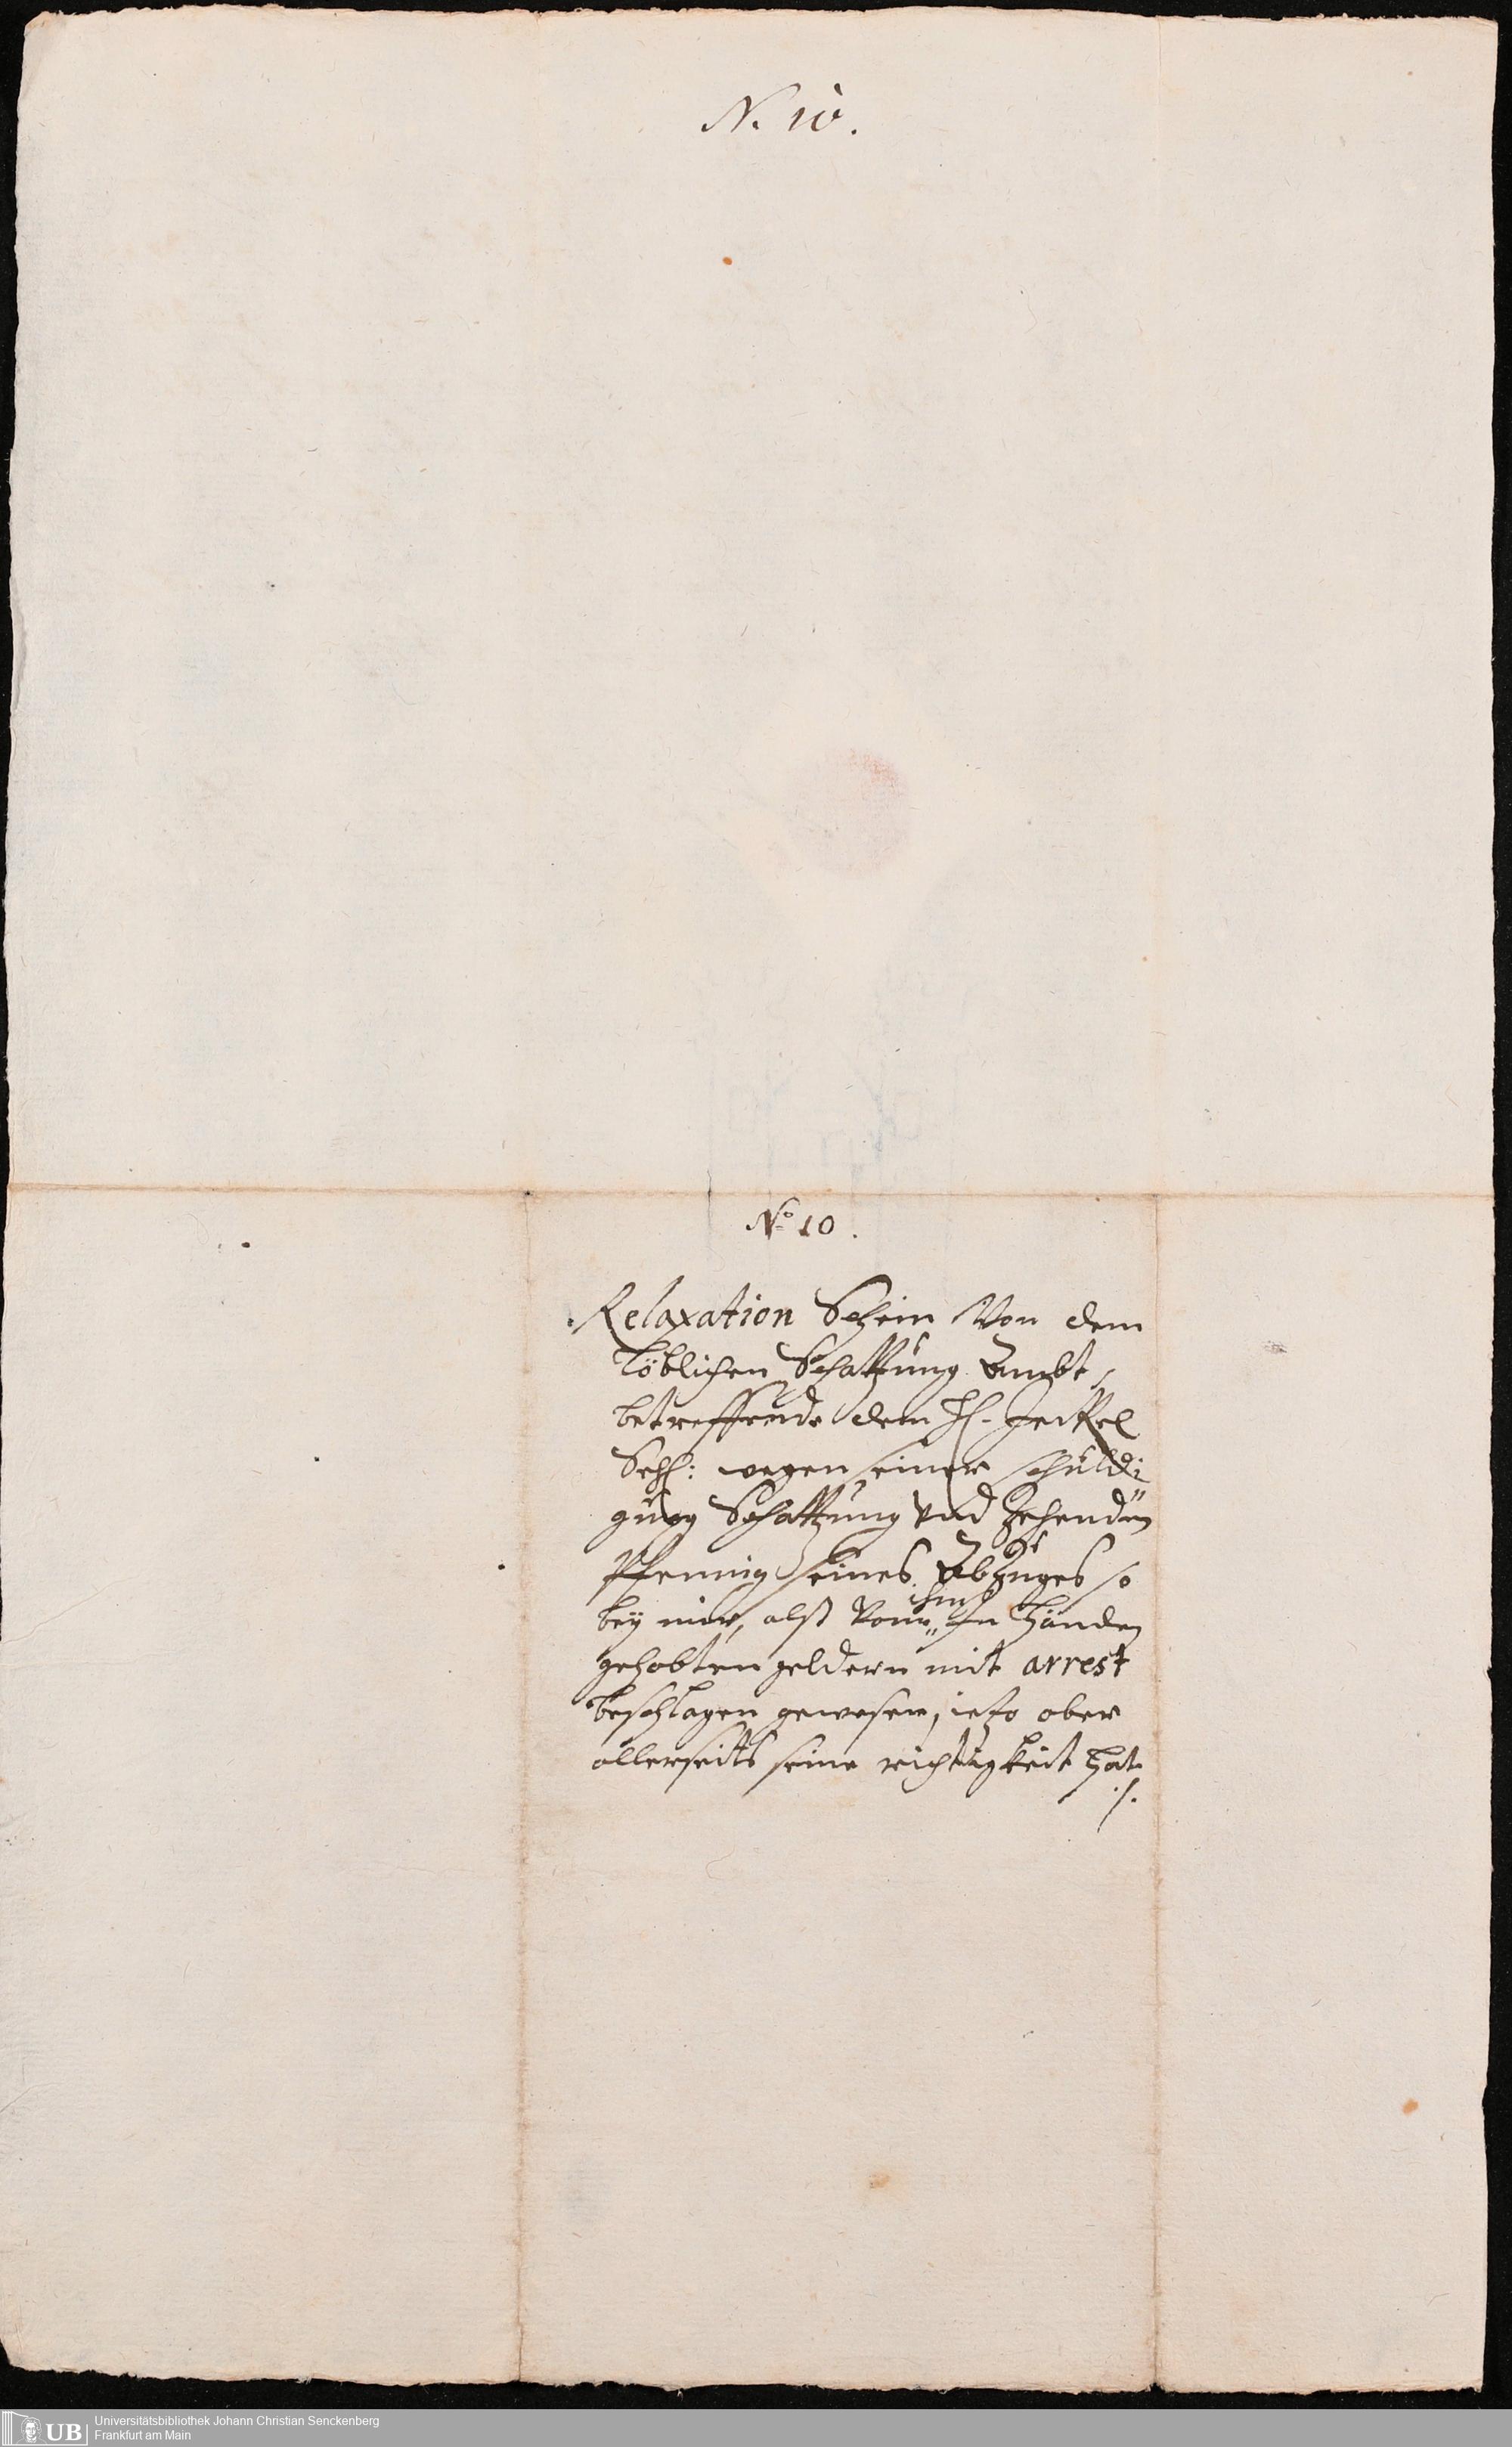 N. 10.
No 10.
Relaxation Schein Von dem
löblichen Schatzung Ambt,
betreffende dem H. Jeckel
Sehl: wegen seiner schuldi
gung Schatzung vnd Zehenden
Pfennig seines Abzuges so
ihm
bey mir, alß von in händen
gehabten geldern mit arrest
beschlagen gewesen, jetzo aber
allerseits seine richtigkeit hat
./.
UB
Universitätsbibliothek Johann Christian Senckenberg
Frankfurt am Main